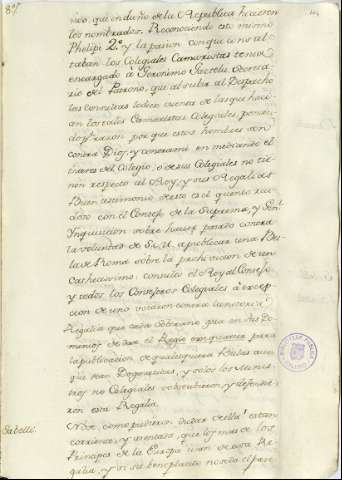 87
que en daño de la Republica hicieron
los nombrados. Reconociendo esto mismo
Phelipe 2.º y la pasion con que consul
taban los Colegiales Camaristas tenia
encargado à Geronimo Secreta
rio del Patrono, que al subir al Despacho
las consultas le diera cuenta de las que haci
an los tales Camaristas Colegiales, poni
por que estos hombres son
contra Dios, y contra mi en mediando el
interes del Colegio, ò de sus Colegiales no tie
nen respecto al Rey, y sus Regalias
Buen testimonio de esto es el quento suce
dido con el Consejo de la Suprema, y Gral
Ynquisicion sobre haver pasado contra
la voluntad de S. M. a publicar una Bu
la de Roma sobre la prohivicion de un
Cathecismo: consulto el Rey al Consejo
y todos los Consejeros Colegiales à excep
cion de uno votaron contra la notoria
Regalia que cada Soberano goza en sus Do
minios de dar el Regio exequatur para
la publicacion de qualesquiera Bulas aun
que sean Dogmaticas, y solos los Minis
tros no Colegiales sostubieron, y defendie
ron esta Regalia.
como pudieron dudar de ella? estan
corriente, y asentado, que los mas de los
Principes de la Europa usan de esta Re
galia, y si su beneplacito no sela el pase